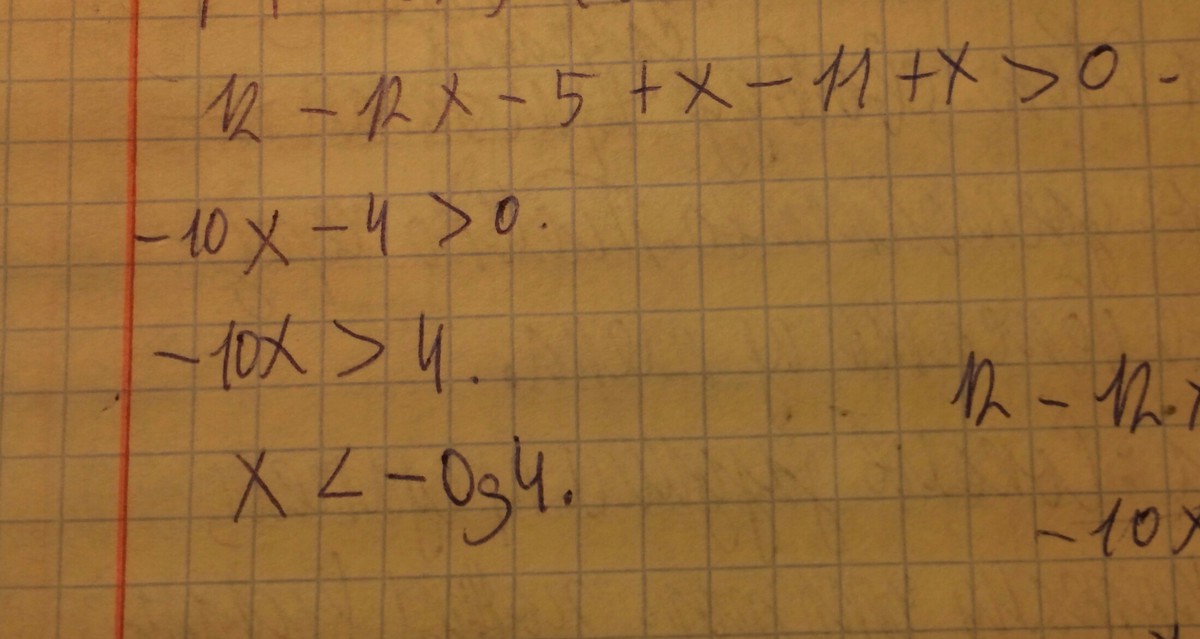 12 - 12x - 5 + x - 11 + x > 0 -
-10x - 4 > 0.
-10x > 4.
x < -0,4.
12 - 12x
-10x